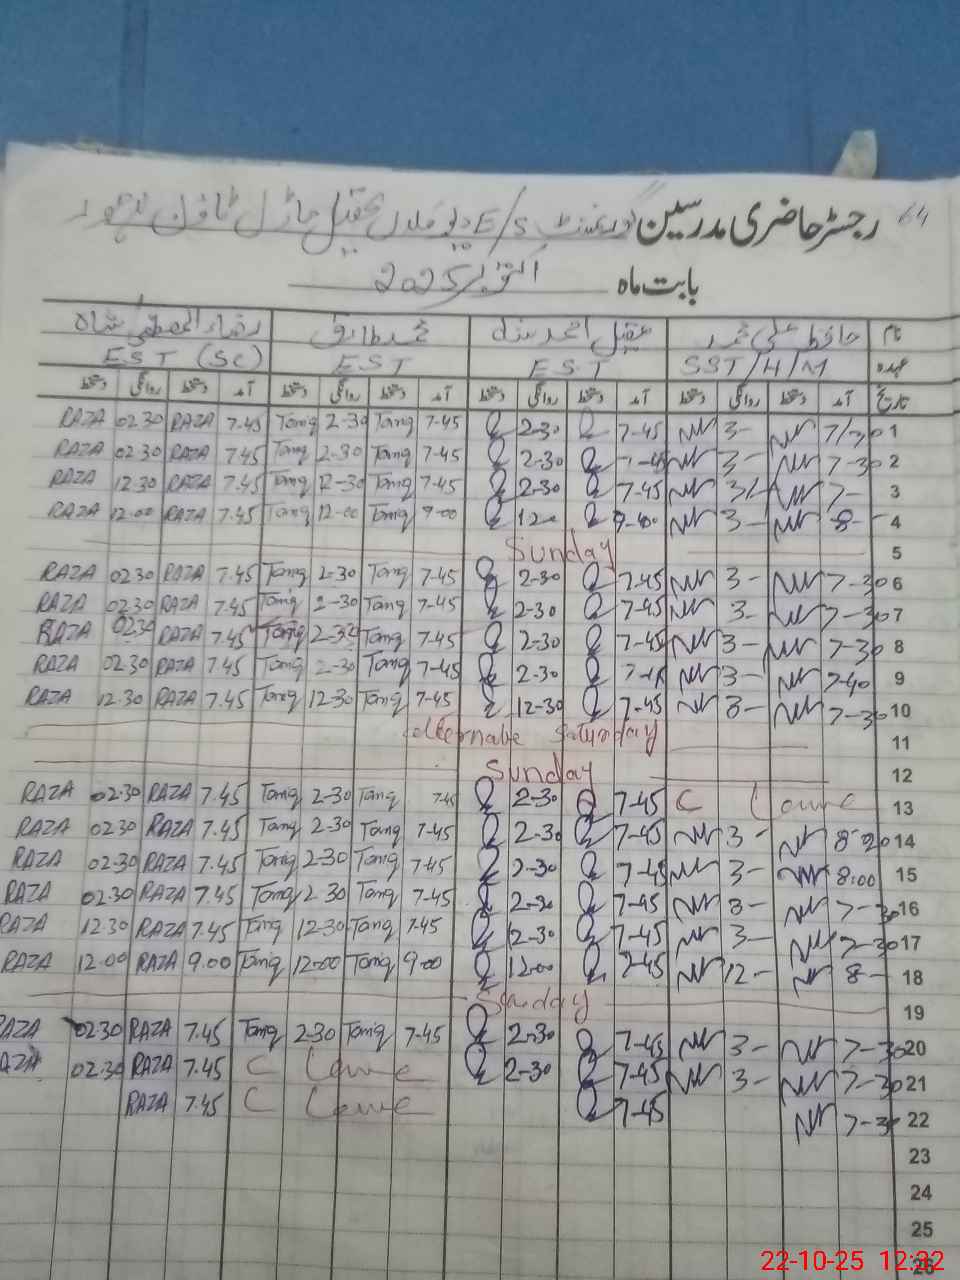 64
رجسٹر حاضری مدرسین گورنمنٹ E/S
بابت ماہ اکتوبر 2025
نام حافظ علی محمد عقیل احمد محمد طارق
عہدہ SST/H/M E.S.T EST EST (SC)
تاریخ آمد دستخط روانگی دستخط آمد دستخط روانگی دستخط آمد دستخط روانگی دستخط آمد دستخط روانگی دستخط
RAZA 02.30 RAZA 7.45 Tariq 2-30 Tariq 7-45 2-30 7-45 3- 1
RAZA 02.30 RAZA 7.45 Tariq 2-30 Tariq 7-45 2-30 3- 7-30 2
RAZA 12.30 RAZA 7.45 Tariq 12-30 Tariq 7-45 2-30 7-45 7- 3
RAZA 12.00 RAZA 7.45 Tariq 12-00 Tariq 9-00 3- 8- 4
Sunday 5
RAZA 0230 RAZA 7.45 Tariq 2-30 Tariq 7-45 2-30 7-45 3- 7-30 6
RAZA 02.30 RAZA 7.45 Tariq 2-30 Tariq 7-45 2-30 7-45 3- 7-30 7
RAZA 0230 RAZA 7.45 Tariq 2-30 Tariq 7-45 2-30 7-45 3- 7-30 8
RAZA 02.30 RAZA 7.45 Tariq 2-30 Tariq 7-45 2-30 3- 7-40 9
RAZA 12.30 RAZA 7.45 Tariq 12-30 Tariq 7-45 12-30 7-45 3- 7-30 10
alternate Saturday 11
Sunday 12
RAZA 02.30 RAZA 7.45 Tariq 2-30 Tariq 7-45 2-30 7-45 C Leave 13
RAZA 0230 RAZA 7.45 Tariq 2-30 Tariq 7-45 2-30 7-45 3- 8-20 14
RAZA 02.30 RAZA 7.45 Tariq 2-30 Tariq 7-45 2-30 7-45 3- 8:00 15
RAZA 02.30 RAZA 7.45 Tariq 2-30 Tariq 7-45 2-30 7-45 3- 7-30 16
RAZA 12.30 RAZA 7.45 Tariq 12-30 Tariq 7-45 2-30 7-45 3- 7-30 17
RAZA 12.00 RAZA 9.00 Tariq 12-00 Tariq 9-00 12-00 7-45 12- 8- 18
Sunday 19
RAZA 0230 RAZA 7.45 Tariq 2-30 Tariq 7-45 2-30 7-45 3- 7-30 20
RAZA 02.30 RAZA 7.45 C Leave 2-30 7-45 3- 7-30 21
RAZA 7.45 C Leave 7-45 7-30 22
23
24
25
26
22-10-25 12:32